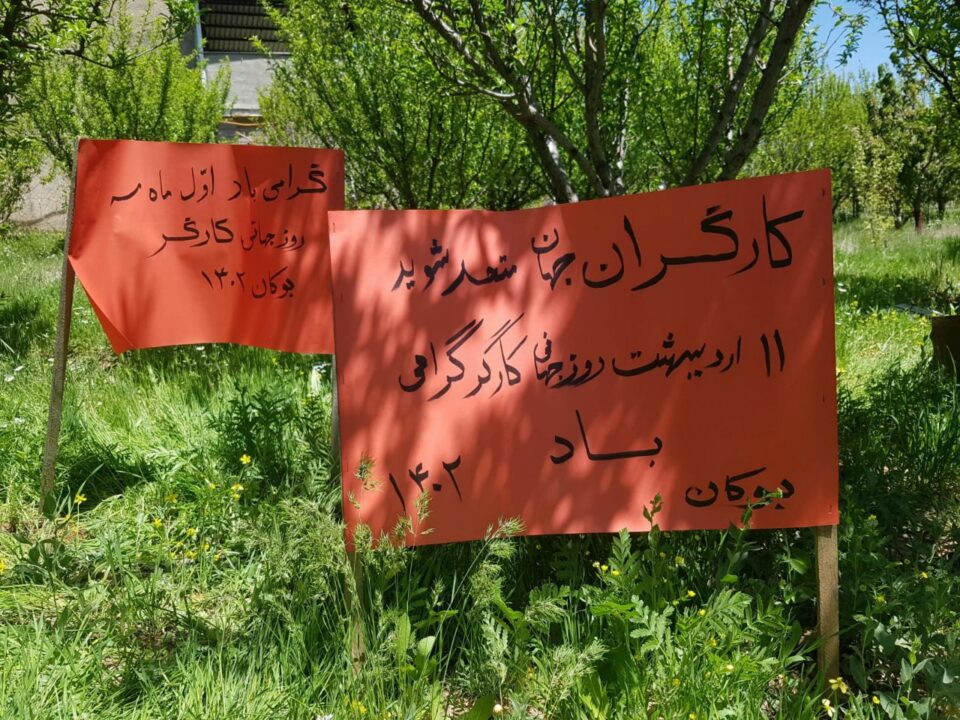 گرامی باد اوّل ماه مه
روز جهانی کارگر
بوکان ۱۴۰۲
کارگران جهان متحد شوید
۱۱ اردیبهشت روز جهانی کارگر گرامی
باد
بوکان ۱۴۰۲